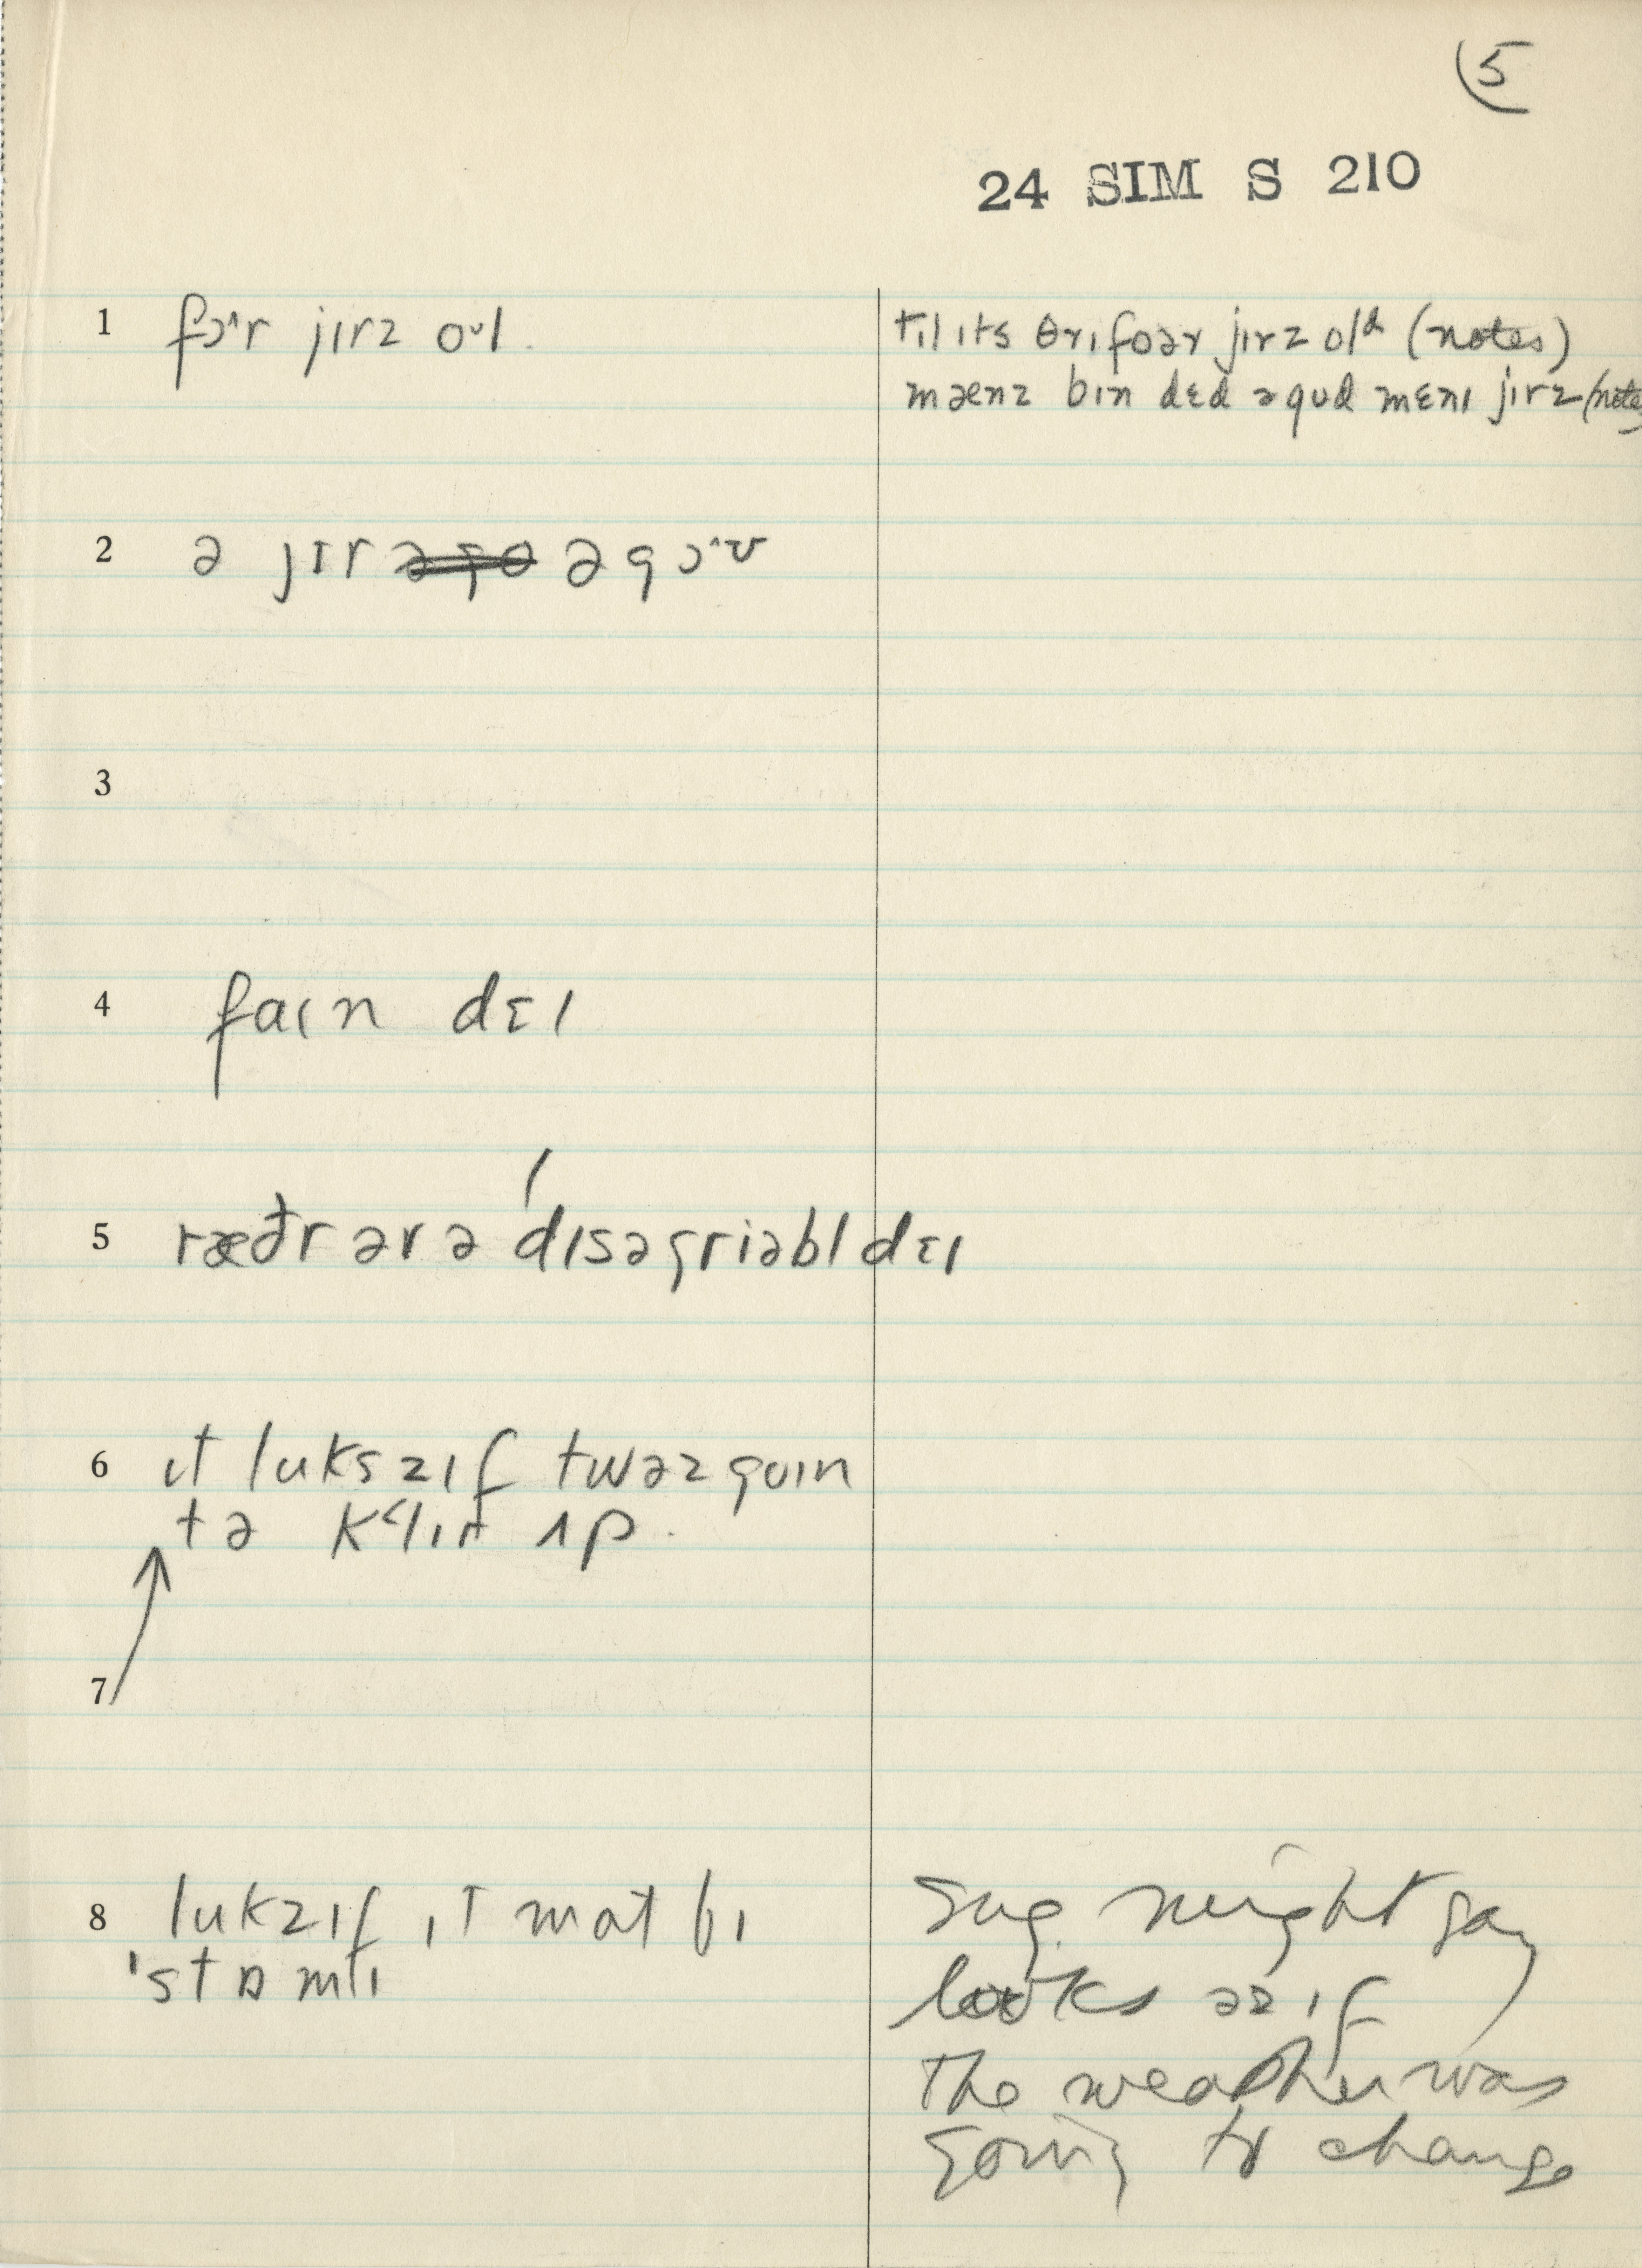 5
24 SIM S 210
1 fɔ^r jɪrz oʊl. tɪl ɪts θri foər jɪrz olᵈ (notes)
mænz bɪn dɛd əgʊd mɛnɪ jɪrz (note
2 ə jɪr əgo əgɔ^ʊ
3
4 faɪn dɛɪ
5 ræðr ər ə dɪsəgriəbl dɛɪ
6 ɪt lukszɪf twəz goɪn
tə
ʌp.
7
8 lukzɪf ɪt mat bɪ
'stɒmɪ
Sug. might say
looks əz ɪf
the weather was
going to change